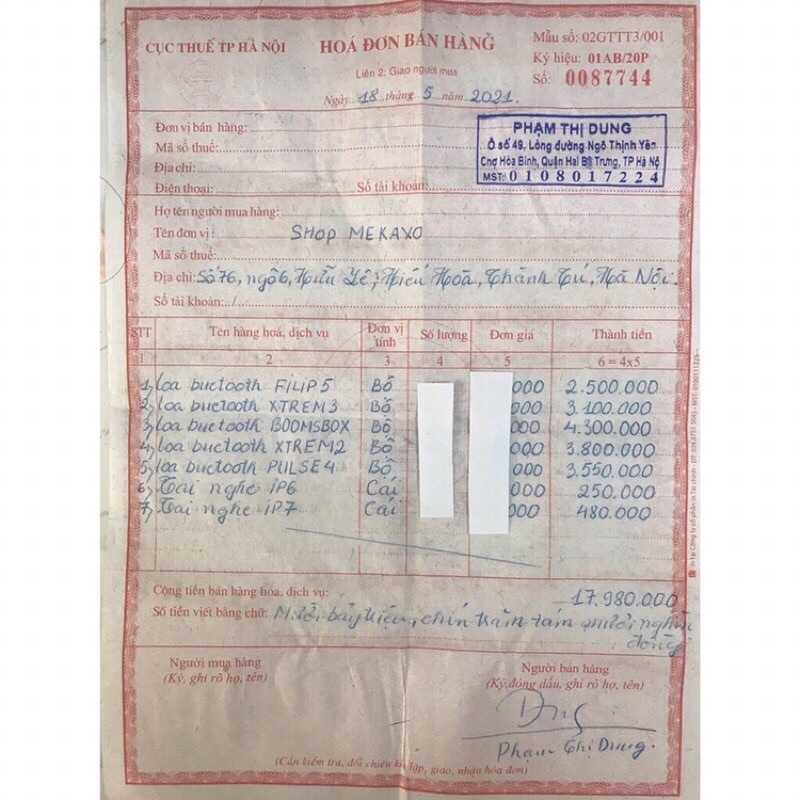 CỤC THUẾ TP HÀ NỘI
HOÁ ĐƠN BÁN HÀNG
Mẫu số: 02GTTT3/001
Liên 2: Giao người mua
Ký hiệu: 01AB/20P
Số: 0087744
Ngày 18 tháng 5 năm 2021.
Đơn vị bán hàng:
Mã số thuế:
Địa chỉ:
Điện thoại: Số tài khoản:
PHẠM THỊ DUNG
Ô số 49, Lòng đường Ngõ Thịnh Yên
Chợ Hòa Bình, Quận Hai Bà Trưng, TP Hà Nộ
MST: 0108017224
Họ tên người mua hàng:
Tên đơn vị: SHOP MEKAXO
Mã số thuế:
Địa chỉ: Số 76, ngõ 6, Hữu Lê, Hữu Hoà, Thành Trì, Hà Nội.
Số tài khoản: /
STT Tên hàng hoá, dịch vụ Đơn vị tính Số lượng Đơn giá Thành tiền
1 2 3 4 5 6 = 4x5
1, Loa buctooth FILIP 5 Bộ 000 2.500.000
2, Loa buctooth XTREM 3 Bộ 000 3.100.000
3, Loa buctooth BOOMSBOX Bộ 000 4.300.000
4, Loa buctooth XTREM2 Bộ 000 3.800.000
5, Loa buctooth PULSE 4 Bộ 000 3.550.000
6, Tai nghe iP6 Cái 000 250.000
7, Tai nghe iP7 Cái 000 480.000
Cộng tiền bán hàng hóa, dịch vụ: 17.980.000
Số tiền viết bằng chữ: Mười bảy triệu, chín trăm tám mươi nghìn
đồng
Người mua hàng
(Ký, ghi rõ họ, tên)
Người bán hàng
(Ký, đóng dấu, ghi rõ họ, tên)
Dung
Phạm Thị Dung.
(Cần kiểm tra, đối chiếu khi lập, giao, nhận hóa đơn)